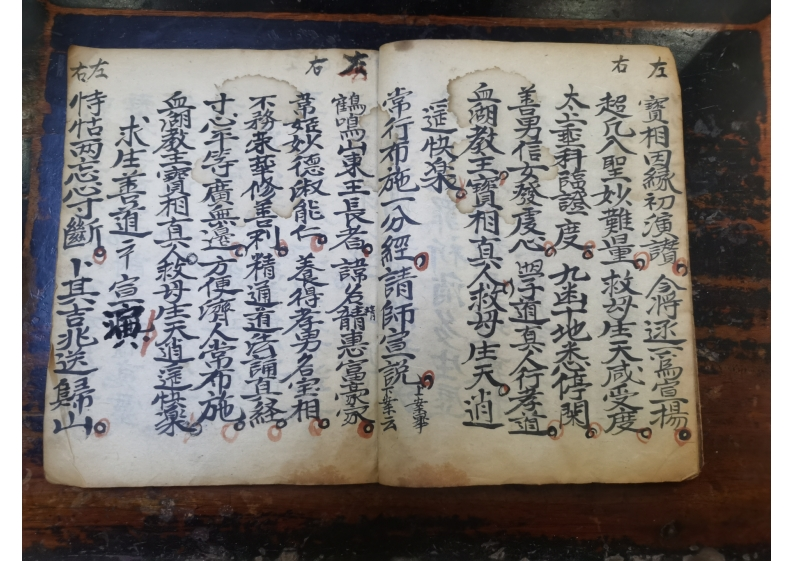 左
寶相因緣初演讚 今將逐一為宣揚
右
超凡入聖妙難量 救母生天咸受度
太上垂科臨證度 九幽十地悉停閑
善男信女發虔心 學道真人行孝道
血湖教主寶相真人救母生天逍
遥快樂
常行布施一分經請師宣說
左
鶴鳴山東王長者 諱名惠富豪家
右
姬妙德淑能仁 養得孝男名宝相
不務荣華修善利 精通道法誦真経
寸心平等廣無邊 方便濟人常布施
血湖教主寶相真人救母生天逍遥快樂
求生善道 宣演
左
右
恃怙两忘心寸斷 卜其吉兆送歸山